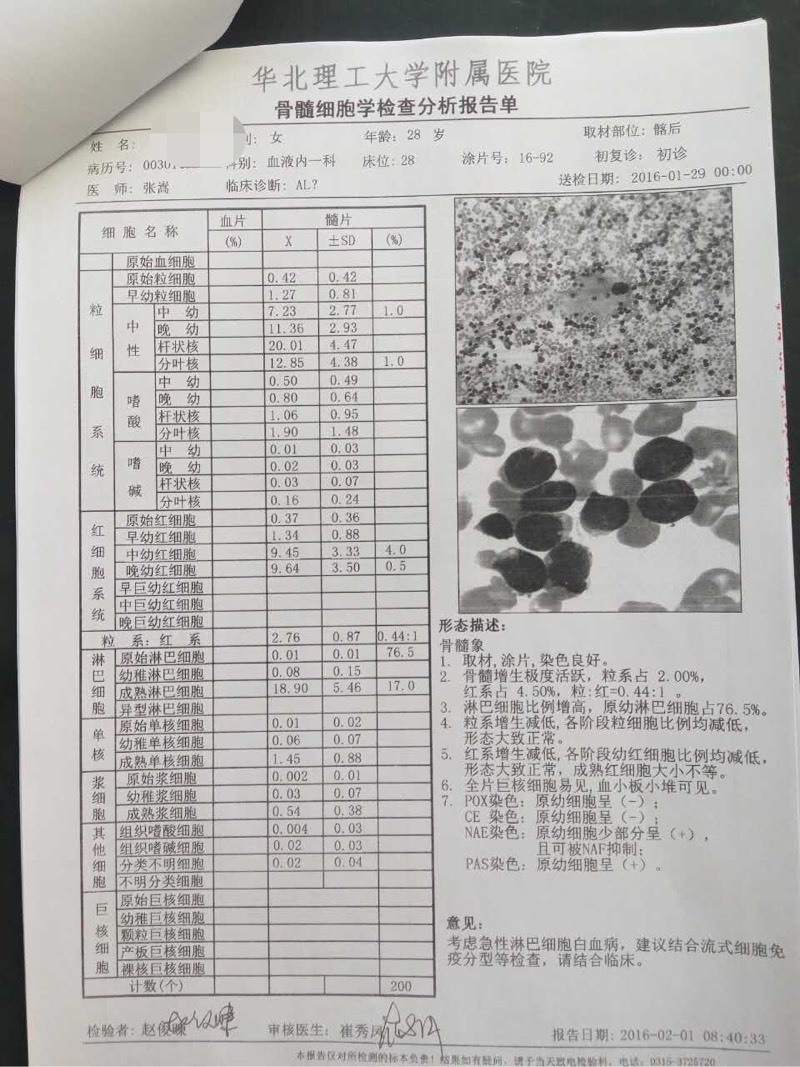 华北理工大学附属医院
骨髓细胞学检查分析报告单
姓 名: 别: 女 年龄: 28 岁 取材部位: 髂后
病历号: 0030 科别: 血液内一科 床位: 28 涂片号: 16-92 初复诊: 初诊
医 师: 张嵩 临床诊断: AL? 送检日期: 2016-01-29 00:00
细 胞 名 称 血片 髓片
(%) X ±SD (%)
原始血细胞
粒细胞系统
原始粒细胞 0.42 0.42
早幼粒细胞 1.27 0.81
中性
中 幼 7.23 2.77 1.0
晚 幼 11.36 2.93
杆状核 20.01 4.47
分叶核 12.85 4.38 1.0
嗜酸
中 幼 0.50 0.49
晚 幼 0.80 0.64
杆状核 1.06 0.95
分叶核 1.90 1.48
嗜碱
中 幼 0.01 0.03
晚 幼 0.02 0.03
杆状核 0.03 0.07
分叶核 0.16 0.24
红细胞系统
原始红细胞 0.37 0.36
早幼红细胞 1.34 0.88
中幼红细胞 9.45 3.33 4.0
晚幼红细胞 9.64 3.50 0.5
早巨幼红细胞
中巨幼红细胞
晚巨幼红细胞
粒 系: 红 系 2.76 0.87 0.44:1
淋巴细胞
原始淋巴细胞 0.01 0.01 76.5
幼稚淋巴细胞 0.08 0.15
成熟淋巴细胞 18.90 5.46 17.0
异型淋巴细胞
单核
原始单核细胞 0.01 0.02
幼稚单核细胞 0.06 0.07
成熟单核细胞 1.45 0.88
浆细胞
原始浆细胞 0.002 0.01
幼稚浆细胞 0.03 0.07
成熟浆细胞 0.54 0.38
其他细胞
组织嗜酸细胞 0.004 0.03
组织嗜碱细胞 0.02 0.03
分类不明细胞 0.02 0.04
不明分类细胞
巨核细胞
原始巨核细胞
幼稚巨核细胞
颗粒巨核细胞
产板巨核细胞
裸核巨核细胞
计数(个) 200
形态描述:
骨髓象
1. 取材,涂片,染色良好。
2. 骨髓增生极度活跃,粒系占 2.00%,
红系占 4.50%,粒:红=0.44:1 。
3. 淋巴细胞比例增高,原幼淋巴细胞占76.5%。
4. 粒系增生减低,各阶段粒细胞比例均减低,
形态大致正常。
5. 红系增生减低,各阶段幼红细胞比例均减低,
形态大致正常,成熟红细胞大小不等。
6. 全片巨核细胞易见,血小板小堆可见。
7. POX染色: 原幼细胞呈(-);
CE 染色: 原幼细胞呈(-);
NAE染色: 原幼细胞少部分呈(+),
且可被NAF抑制;
PAS染色: 原幼细胞呈(+)。
意见:
考虑急性淋巴细胞白血病,建议结合流式细胞免
疫分型等检查,请结合临床。
检验者: 赵俊嵘 审核医生: 崔秀凤 报告日期: 2016-02-01 08:40:33
本报告仅对所检测的标本负责! 结果如有疑问, 请于当天致电检验科, 电话: 0315-3725720